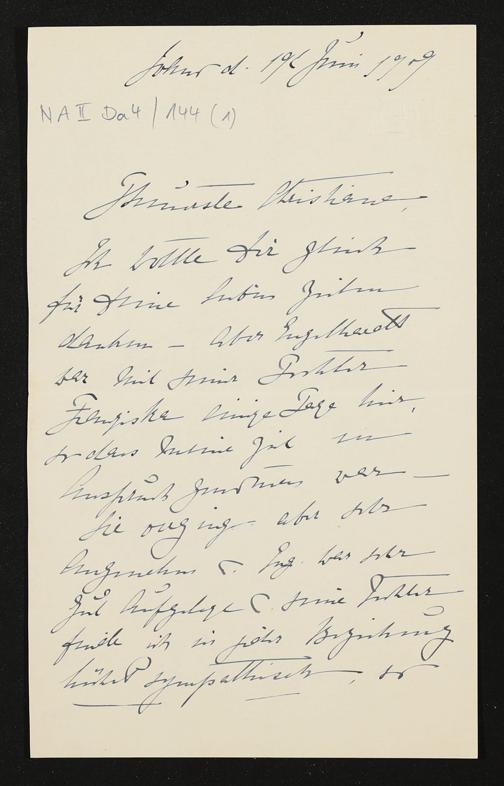 d. 19t Juni 1909
NA II Da4 / 144 (1)
Theuerste Christiane,
Ich wollte Dir gleich
für Deine lieben Zeilen
danken – aber Engelhardt
war mit seiner Tochter
Franziska einige Tage hier,
so dass meine Zeit in
Anspruch genommen war –
Sie verging aber sehr
angenehm &. Eng. war sehr
gut aufgelegt &. seine Tochter
finde ich in jeder Beziehung
höchst sympathisch, so